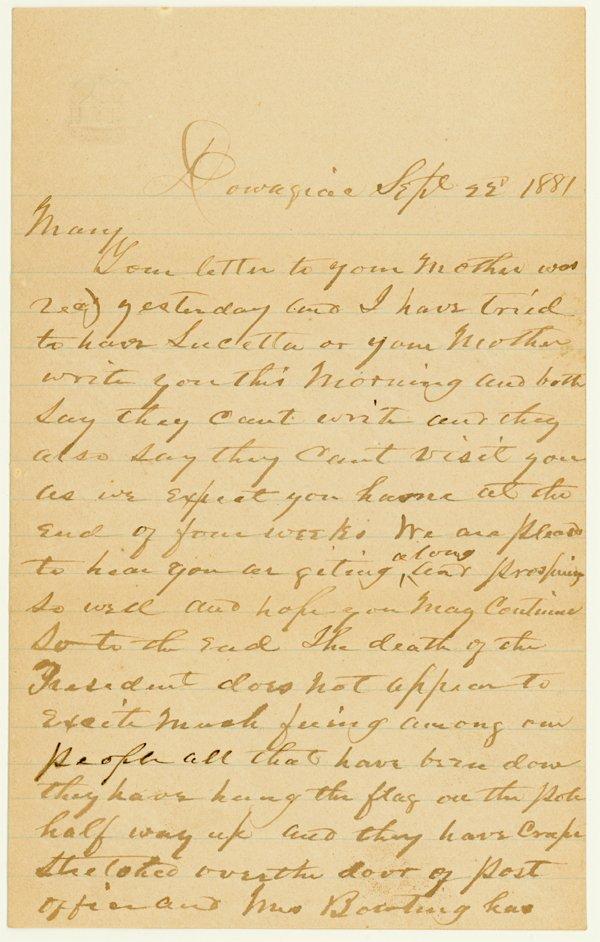 Dowagiac Sept 22d 1881
Mary
Your letter to your Mother was
rec) yesterday and I have tried
to have Lucetta or your Mother
write you this Morning and both
Say they cant write and they
also Say they Cant visit you
as we Expect you home at the
End of four weeks We are pleasd
to hear you ar geting along and prospering
So well and hope you May Continue
So to the End The death of the
President does Not appear to
Excite Much feeing among our
people all that have been done
they have hung the flag on the pole
half way up and they have Crape
Stretched over the door of post
office and Mrs Bowling has